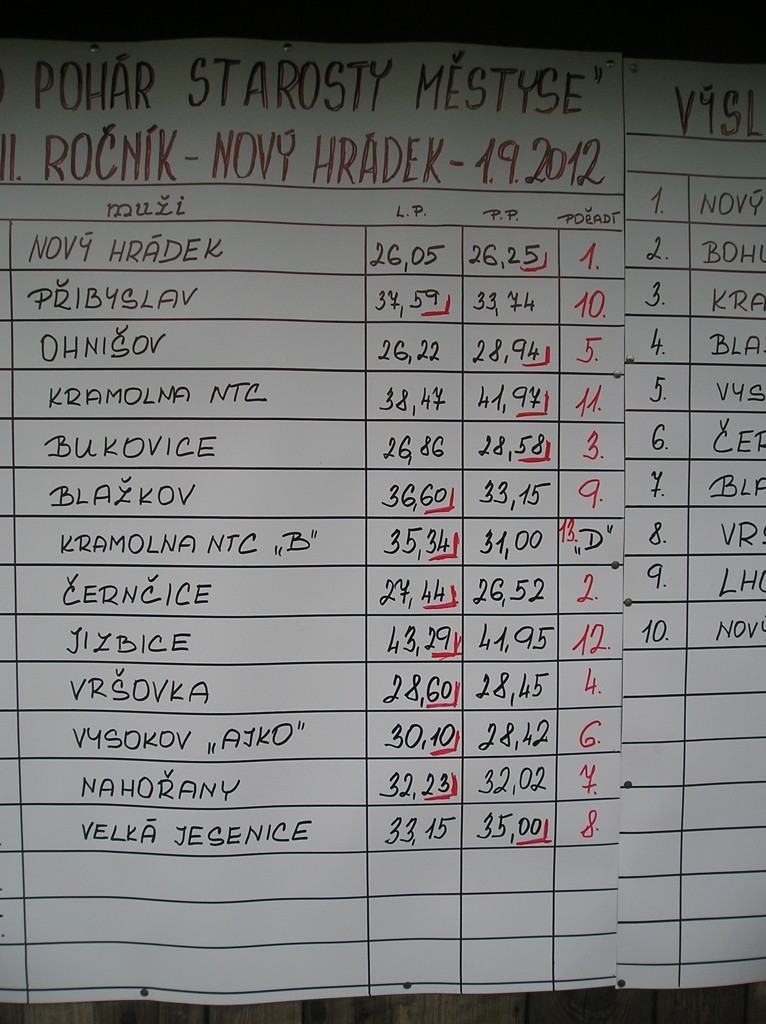 POHÁR STAROSTY MĚSTYSE"
II. ROČNÍK - NOVÝ HRÁDEK - 1.9.2012
muži L.P. P.P. POŘADÍ
NOVÝ HRÁDEK 26,05 26,25 1.
PŘIBYSLAV 37,59 33,74 10.
OHNIŠOV 26,22 28,94 5.
KRAMOLNA NTC 38,47 41,97 11.
BUKOVICE 26,86 28,58 3.
BLAŽKOV 36,60 33,15 9.
KRAMOLNA NTC „B" 35,34 31,00 13. „D"
ČERNČICE 27,44 26,52 2.
JIZBICE 43,29 41,95 12.
VRŠOVKA 28,60 28,45 4.
VYSOKOV „AJKO" 30,10 28,42 6.
NAHOŘANY 32,23 32,02 7.
VELKÁ JESENICE 33,15 35,00 8.
VÝSL
1. NOVÝ
2. BOHU
3. KRA
4. BLA
5. VYS
6. ČER
7. BLA
8. VRŠ
9. LHO
10. NOVÝ